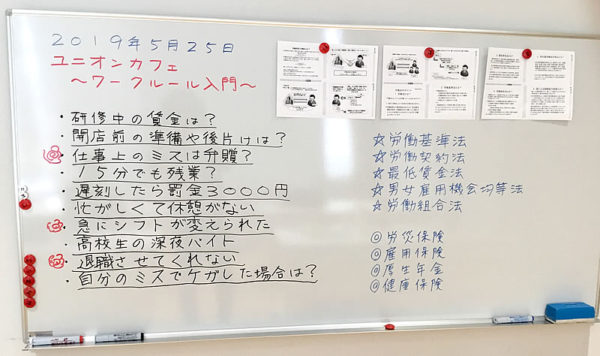 2019年5月25日
ユニオンカフェ
～ワークルール入門～
・研修中の賃金は?
・開店前の準備や後片けは?
・仕事上のミスは弁償?
・15分でも残業?
・遅刻したら罰金3000円
・忙がしくて休憩がない
・急にシフトが変えられた
・高校生の深夜バイト
・退職させてくれない
・自分のミスでケガした場合は?
☆労働基準法
☆労働契約法
☆最低賃金法
☆男女雇用機会均等法
☆労働組合法
◎労災保険
◎雇用保険
◎厚生年金
◎健康保険